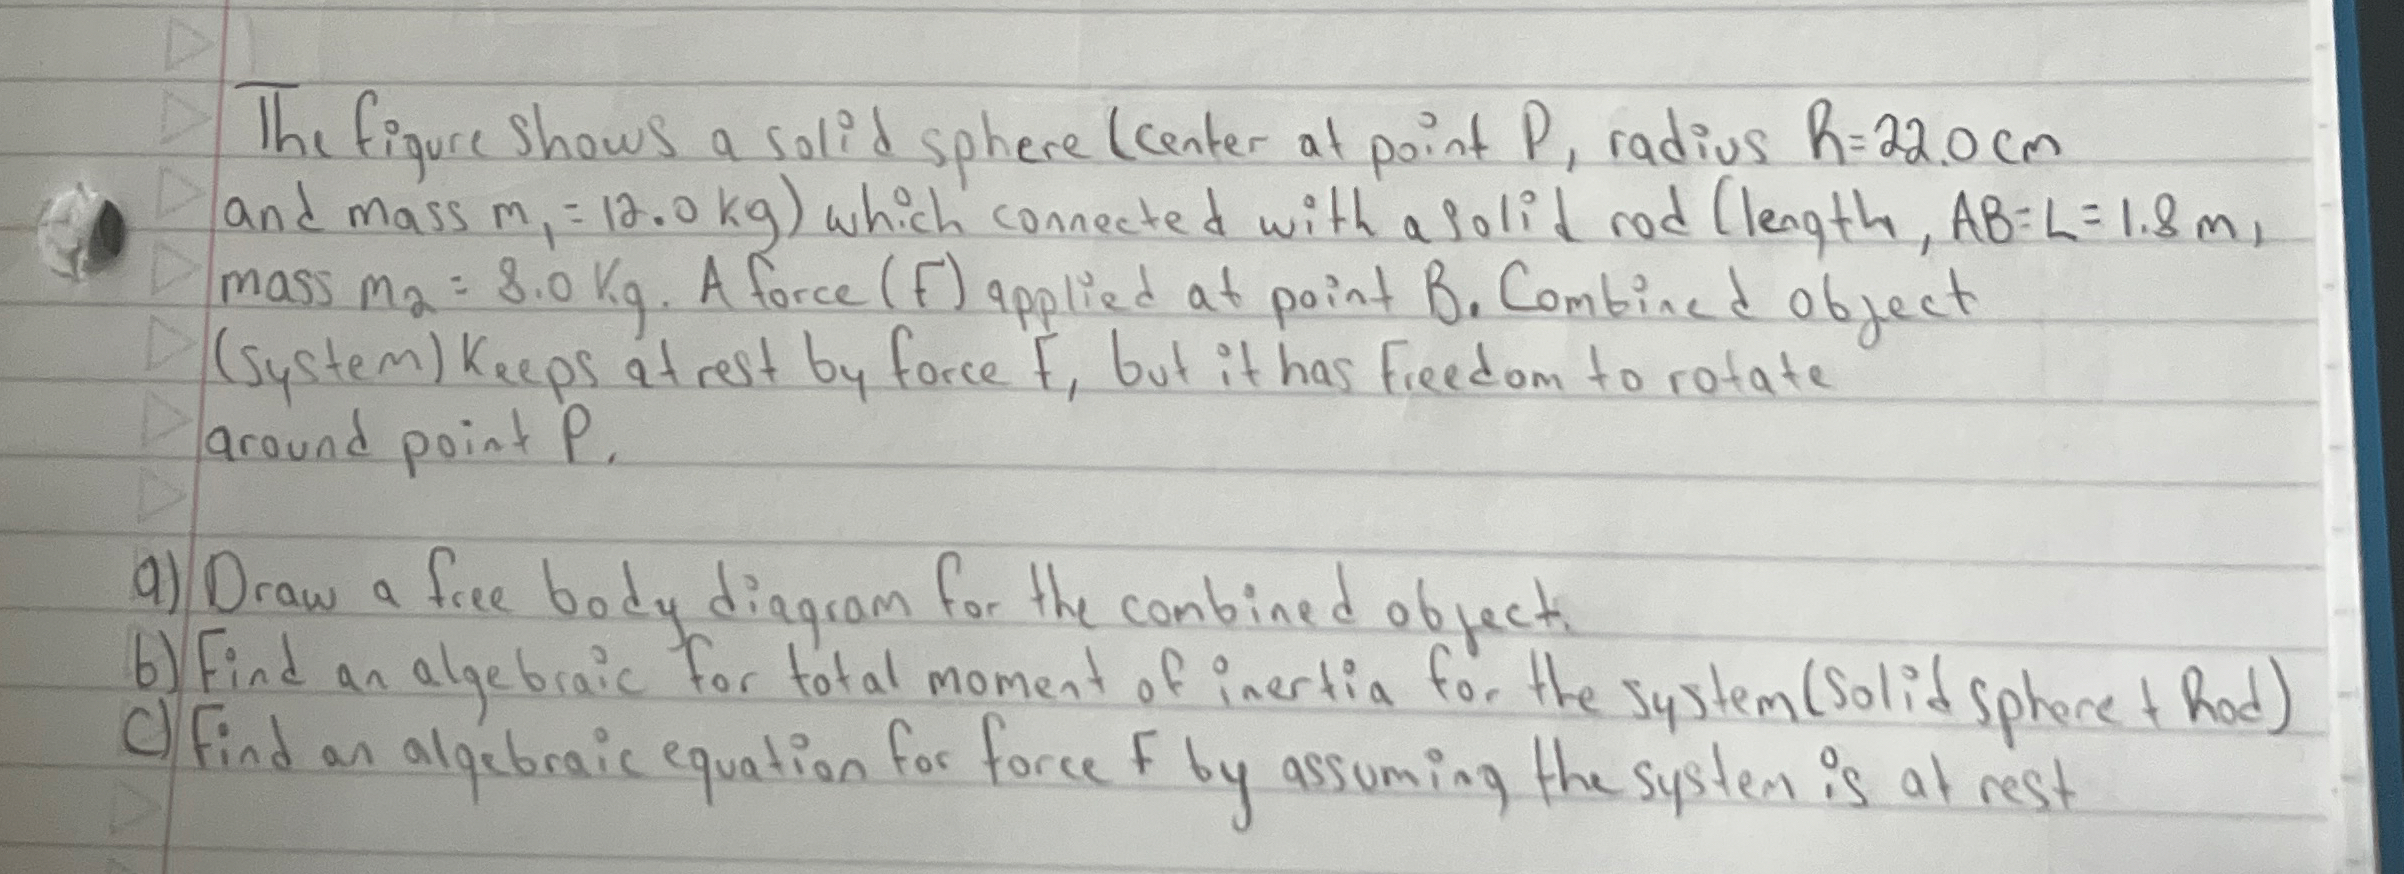 The figure shows a solid sphere (center at point P, radius R=22.0 cm
and mass m₁ = 12.0 kg) which connected with a solid rod (length, AB=L=1.8 m,
mass m₂ = 8.0 Kg. A force (F) applied at point B. Combined object
(system) Keeps at rest by force F, but it has Freedom to rotate
around point P.
a) Draw a free body diagram for the combined object.
b) Find an algebraic for total moment of inertia for the system (Solid sphere + Rod)
c) Find an algebraic equation for force F by assuming the system is at rest